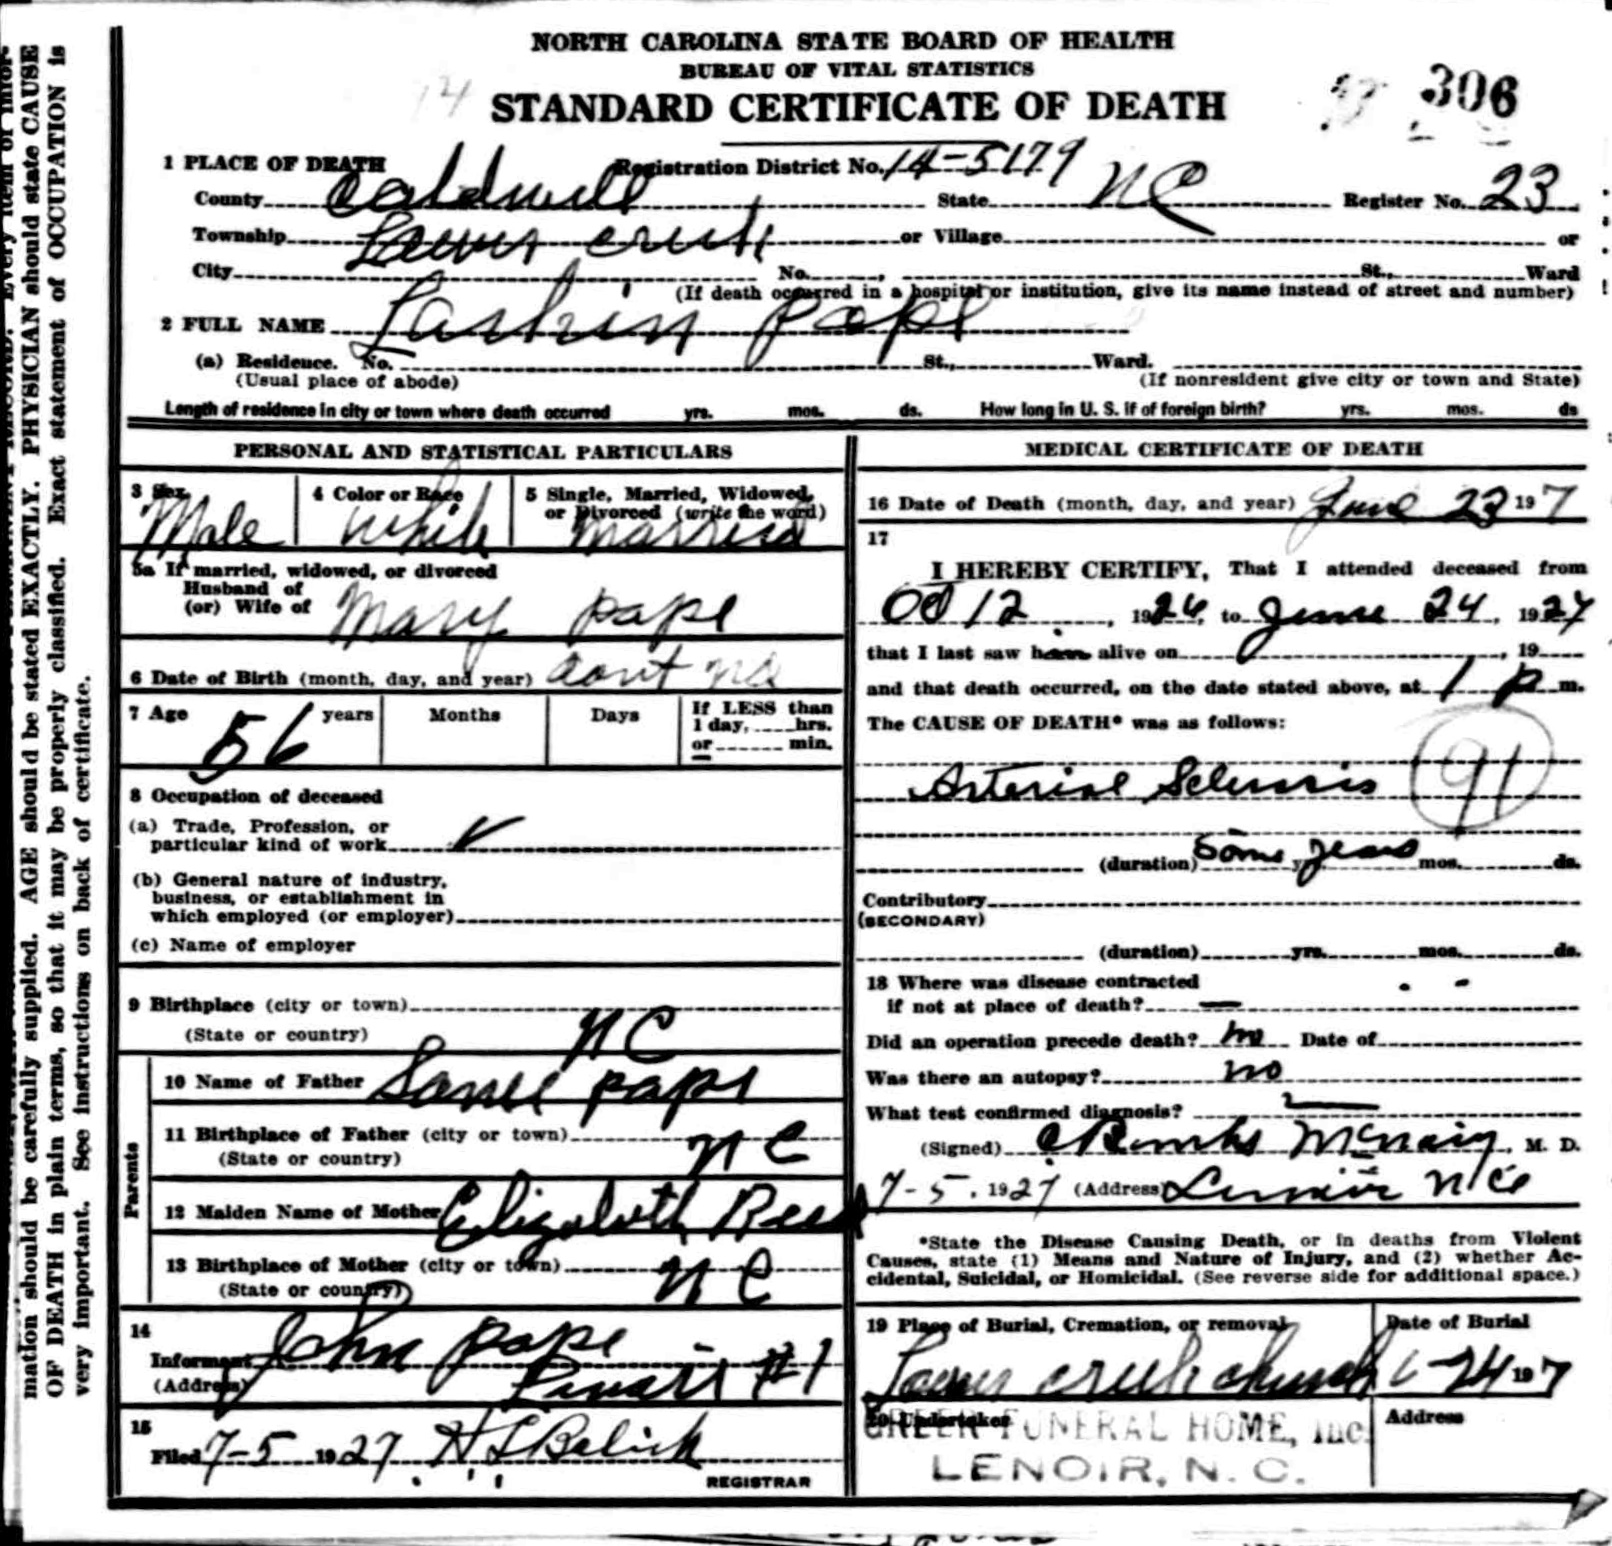 mation should be carefully supplied. AGE should be stated EXACTLY. PHYSICIAN should state CAUSE
OF DEATH in plain terms, so that it may be properly classified. Exact statement of OCCUPATION is
very important. See instructions on back of certificate.
NORTH CAROLINA STATE BOARD OF HEALTH
BUREAU OF VITAL STATISTICS
STANDARD CERTIFICATE OF DEATH
14
306
1 PLACE OF DEATH Registration District No. 14-5179
County Caldwell State NC Register No. 23
Township Lower creek or Village or
City No. , St., Ward
(If death occurred in a hospital or institution, give its name instead of street and number)
2 FULL NAME Larkin pope
(a) Residence. No. St., Ward.
(Usual place of abode) (If nonresident give city or town and State)
Length of residence in city or town where death occurred yrs. mos. ds. How long in U. S. if of foreign birth? yrs. mos. ds
PERSONAL AND STATISTICAL PARTICULARS
3 Sex 4 Color or Race 5 Single, Married, Widowed, or Divorced (write the word)
Male while married
5a If married, widowed, or divorced
Husband of
(or) Wife of Mary pape
6 Date of Birth (month, day, and year) dont no
7 Age 56 years Months Days If LESS than
1 day, hrs.
or min.
8 Occupation of deceased
(a) Trade, Profession, or
particular kind of work
(b) General nature of industry,
business, or establishment in
which employed (or employer)
(c) Name of employer
9 Birthplace (city or town)
(State or country) N C
Parents
10 Name of Father pape
11 Birthplace of Father (city or town)
(State or country) N C
12 Maiden Name of Mother Elizabeth Reed
13 Birthplace of Mother (city or town)
(State or country) N C
14
Informant John pope
(Address) #1
15
Filed 7-5 1927 H L
REGISTRAR
MEDICAL CERTIFICATE OF DEATH
16 Date of Death (month, day, and year) June 23 197
17
I HEREBY CERTIFY, That I attended deceased from
Oct 12, 1926, to June 24, 1927
that I last saw him alive on , 19
and that death occurred, on the date stated above, at 1 p m.
The CAUSE OF DEATH* was as follows:
Arterial Sclerosis 91
(duration) Some years mos. ds.
Contributory
(SECONDARY)
(duration) yrs. mos. ds.
18 Where was disease contracted
if not at place of death? —
Did an operation precede death? no Date of
Was there an autopsy? no
What test confirmed diagnosis?
(Signed) McNairy, M. D.
7-5, 1927 (Address) Lenoir N C
*State the Disease Causing Death, or in deaths from Violent
Causes, state (1) Means and Nature of Injury, and (2) whether Ac-
cidental, Suicidal, or Homicidal. (See reverse side for additional space.)
19 Place of Burial, Cremation, or removal Date of Burial
Lower creek church 6-24 197
20 Undertaker Address
GREER FUNERAL HOME, Inc.
LENOIR, N. C.